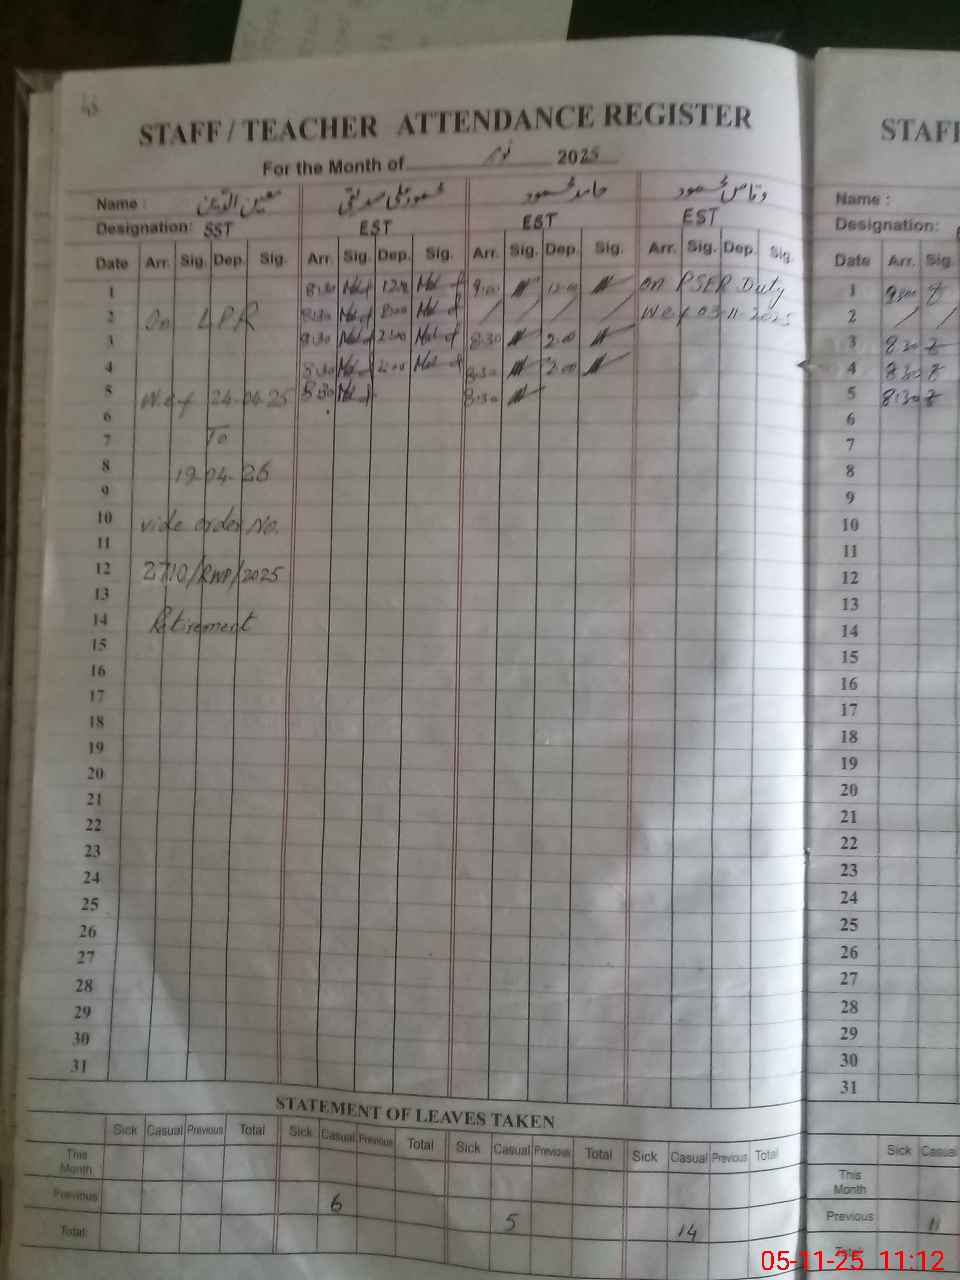 STAFF / TEACHER ATTENDANCE REGISTER
For the Month of نومبر 2025
Name : معین الدین محمود علی صدیقی حامد محمود وقاص محمود
Designation: SST EST EST EST
Date Arr. Sig. Dep. Sig. Arr. Sig. Dep. Sig. Arr. Sig. Dep. Sig. Arr. Sig. Dep. Sig.
1 8:30 12:00 9:00 12:00 On PSER Duty
2 On LPR 8:30 8:00 / / / / W.e.f 03-11-2025
3 2:00 8:30 2:00
4 8:30 2:00 8:30 2:00
5 W.e.f 24-04-25 8:30 8:30
6
7 To
8 19-04-26
9
10 vide order No.
11
12 2710/RWP/2025
13
14 Retirement
15
16
17
18
19
20
21
22
23
24
25
26
27
28
29
30
31
STATEMENT OF LEAVES TAKEN
Sick Casual Previous Total Sick Casual Previous Total Sick Casual Previous Total Sick Casual Previous Total
This Month
Previous 6 5 14
Total:
STAFF
Name :
Designation:
Date Arr. Sig.
1 9:00
2 / /
3 8:30
4 8:30
5 8:30
6
7
8
9
10
11
12
13
14
15
16
17
18
19
20
21
22
23
24
25
26
27
28
29
30
31
Sick Casual
This Month
Previous 11
Total:
05-11-25 11:12